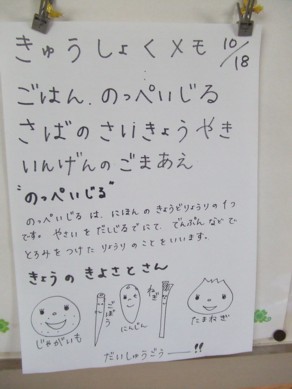 きゅうしょくメモ 10/18
ごはん、のっぺいじる
さばのさいきょうやき
いんげんのごまあえ
"のっぺいじる"
のっぺいじるは、にほんのきょうどりょうりの1つ
です。やさいをだしじるでにて、でんぷんなどで
とろみをつけたりょうりのことをいいます。
きょうのきよさとさん
じゃがいも
ごぼう
にんじん
ねぎ
たまねぎ
だいしゅうごうー!!